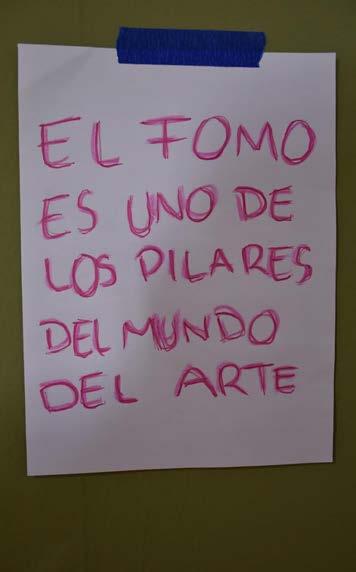 EL FOMO
ES UNO DE
LOS PILARES
DEL MUNDO
DEL ARTE